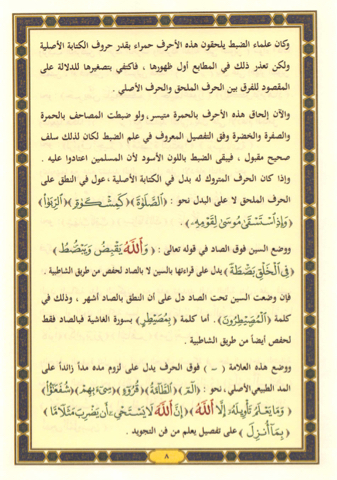 وكان علماء الضبط يلحقون هذه الأحرف حمراء بقدر حروف الكتابة الأصلية
ولكن تعذر ذلك في المطابع أول ظهورها ، فاكتفي بتصغيرها للدلالة على
المقصود للفرق بين الحرف الملحق والحرف الأصلي .
والآن إلحاق هذه الأحرف بالحمرة متيسر ولو ضبطت المصاحف بالحمرة
والصفرة والخضرة وفق التفصيل المعروف في علم الضبط لكان لذلك سلف
صحيح مقبول ، فيبقى الضبط باللون الأسود لأن المسلمين اعتادوا عليه .
وإذا كان الحرف المتروك له بدل في الكتابة الأصلية ، عول في النطق على
الحرف الملحق لا على البدل نحو : ﴿الصَّلَوٰةَ﴾ ﴿كَمِشْكَوٰةٍ﴾ ﴿الرِّبَوٰاْ﴾
﴿وَإِذِ اسْتَسْقَىٰ مُوسَىٰ لِقَوْمِهِ﴾ .
ووضع السين فوق الصاد في قوله تعالى : ﴿وَاللَّهُ يَقْبِضُ وَيَبْصُۜطُ﴾
﴿فِي الْخَلْقِ بَصْۜطَةً﴾ يدل على قراءتها بالسين لا بالصاد لحفص من طريق الشاطبية .
فإن وضعت السين تحت الصاد دل على أن النطق بالصاد أشهر ، وذلك في
كلمة ﴿الْمُصَۣيْطِرُونَ﴾ . أما كلمة ﴿بِمُصَيْطِرٍ﴾ بسورة الغاشية فبالصاد فقط
لحفص أيضاً من طريق الشاطبية .
ووضع هذه العلامة ( ~ ) فوق الحرف يدل على لزوم مده مداً زائداً على
المد الطبيعي الأصلي ، نحو : ﴿الٓمٓ﴾ ﴿الطَّآمَّةُ﴾ ﴿قُرُوٓءٍ﴾ ﴿سِيٓءَ بِهِمْ﴾ ﴿شُفَعَٰٓؤُاْ﴾
﴿وَمَا يَعْلَمُ تَأْوِيلَهُۥٓ إِلَّا اللَّهُ﴾ ﴿إِنَّ اللَّهَ لَا يَسْتَحْيِۦٓ أَن يَضْرِبَ مَثَلًا مَّا﴾
﴿بِمَآ أُنزِلَ﴾ على تفصيل يعلم من فن التجويد .
٨